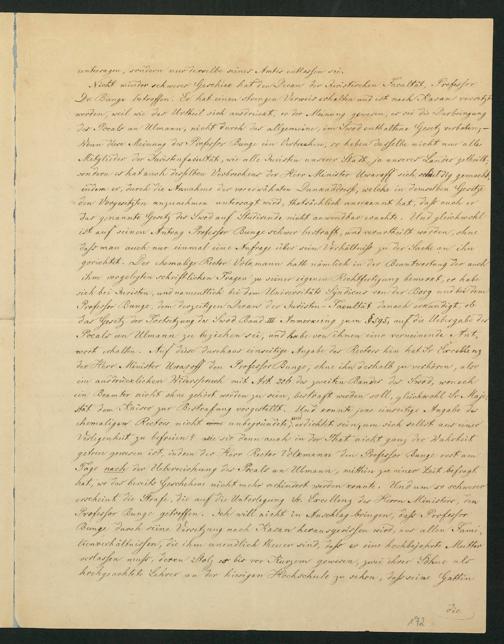 untersagen, sondern nur derselbe seines Amtes entlassen sei.
Nicht minder schweres Geschick hat den Decan der Juristischen Facultät, Professor
Dr Bunge betroffen. Er hat einen strengen Verweis erhalten und ist nach Kasan versetzt
worden, weil wie das Urtheil sich ausdrückt, er der Meinung gewesen, es sei die Darbringung
des Pocals an Ulmann, nicht durch das allgemeine, im Swod enthaltene Gesetz verboten,
Wenn diese Meinung des Professor Bunge ein Verbrechen, so haben dasselbe nicht nur alle
Mitglieder der Juristenfacultät, wie alle Juristen unserer Stadt, ja unseres Landes getheilt,
sondern es hat auch desselben Verbrechens der Herr Minister Uwaroff sich schuldig gemacht,
indem er, durch die Annahme der Dankaddresse, welche in demselben Gesetze
den Vorgesetzten anzunehmen untersagt wird, thatsächlich anerkannt hat, daß auch er
das genannte Gesetz des Swod auf Studirende nicht anwendbar erachte. Und gleichwohl
ist auf seinen Antrag Professor Bunge schwer bestraft, und verurtheilt worden, ohne
daß man auch nur einmal eine Anfrage über sein Verhältniß zu der Sache an ihn
gerichtet. Der ehemalige Rector Volkmann hatte nämlich in der Beantwortung der auch
ihm vorgelegten schriftlichen Fragen zu seiner eigenen Rechtfertigung bemerkt, er habe
sich bei Juristen, und namentlich bei dem Universitäts Syndicus von der Borg und bei dem
Professor Bunge, dem derzeitigen Decan der Juristen-Facultät danach erkundigt, ob
das Gesetz der Fortsetzung des Swod Band III Anmerkung zum § 595, auf die Uebergabe des
Pocals an Ulmann zu beziehen sei, und habe von ihnen eine verneinende Ant-
wort erhalten. Auf diese durchaus einseitige Angabe des Rectors hin hat Se Excellenz
der Herr Minister Uwaroff den Professor Bunge, ohne ihn deshalb zu verhören, also
im ausdrücklichen Widerspruch mit Art 226 des zweiten Bandes des Swod, wonach
ein Beamter nicht ohne gehört worden zu sein, bestraft werden soll, gleichwohl Sr Maje-
stät dem Kaiser zur Bestrafung vorgestellt. Und konnte jene einseitige Angabe des
ehemaligen Rectors nicht unbegründet, und erdichtet sein, um sich selbst aus einer
Verlegenheit zu befreien? wie sie denn auch in der That nicht ganz der Wahrheit
getreu gewesen ist, indem der Herr Rector Volkmann den Professor Bunge erst am
Tage nach der Ueberreichung des Pocals an Ulmann, mithin zu einer Zeit befragt
hat, wo das bereits Geschehene nicht mehr gehindert werden konnte. Und um so schwerer
erscheint die Strafe, die auf die Unterlegung Sr Excellenz des Herrn Ministers, den
Professor Bunge getroffen. Ich will nicht in Anschlag bringen, daß Professor
Bunge durch seine Versetzung nach Kasan herausgerissen wird, aus allen Fami-
lienverhältnissen, die ihm unendlich theuer sind, daß er eine hochbejahrte Mutter
verlassen muß, deren Stolz es bis vor Kurzem gewesen, zwei ihrer Söhne als
hochgeachtete Lehrer an der hiesigen Hochschule zu sehen, daß seine Gattin
die
172